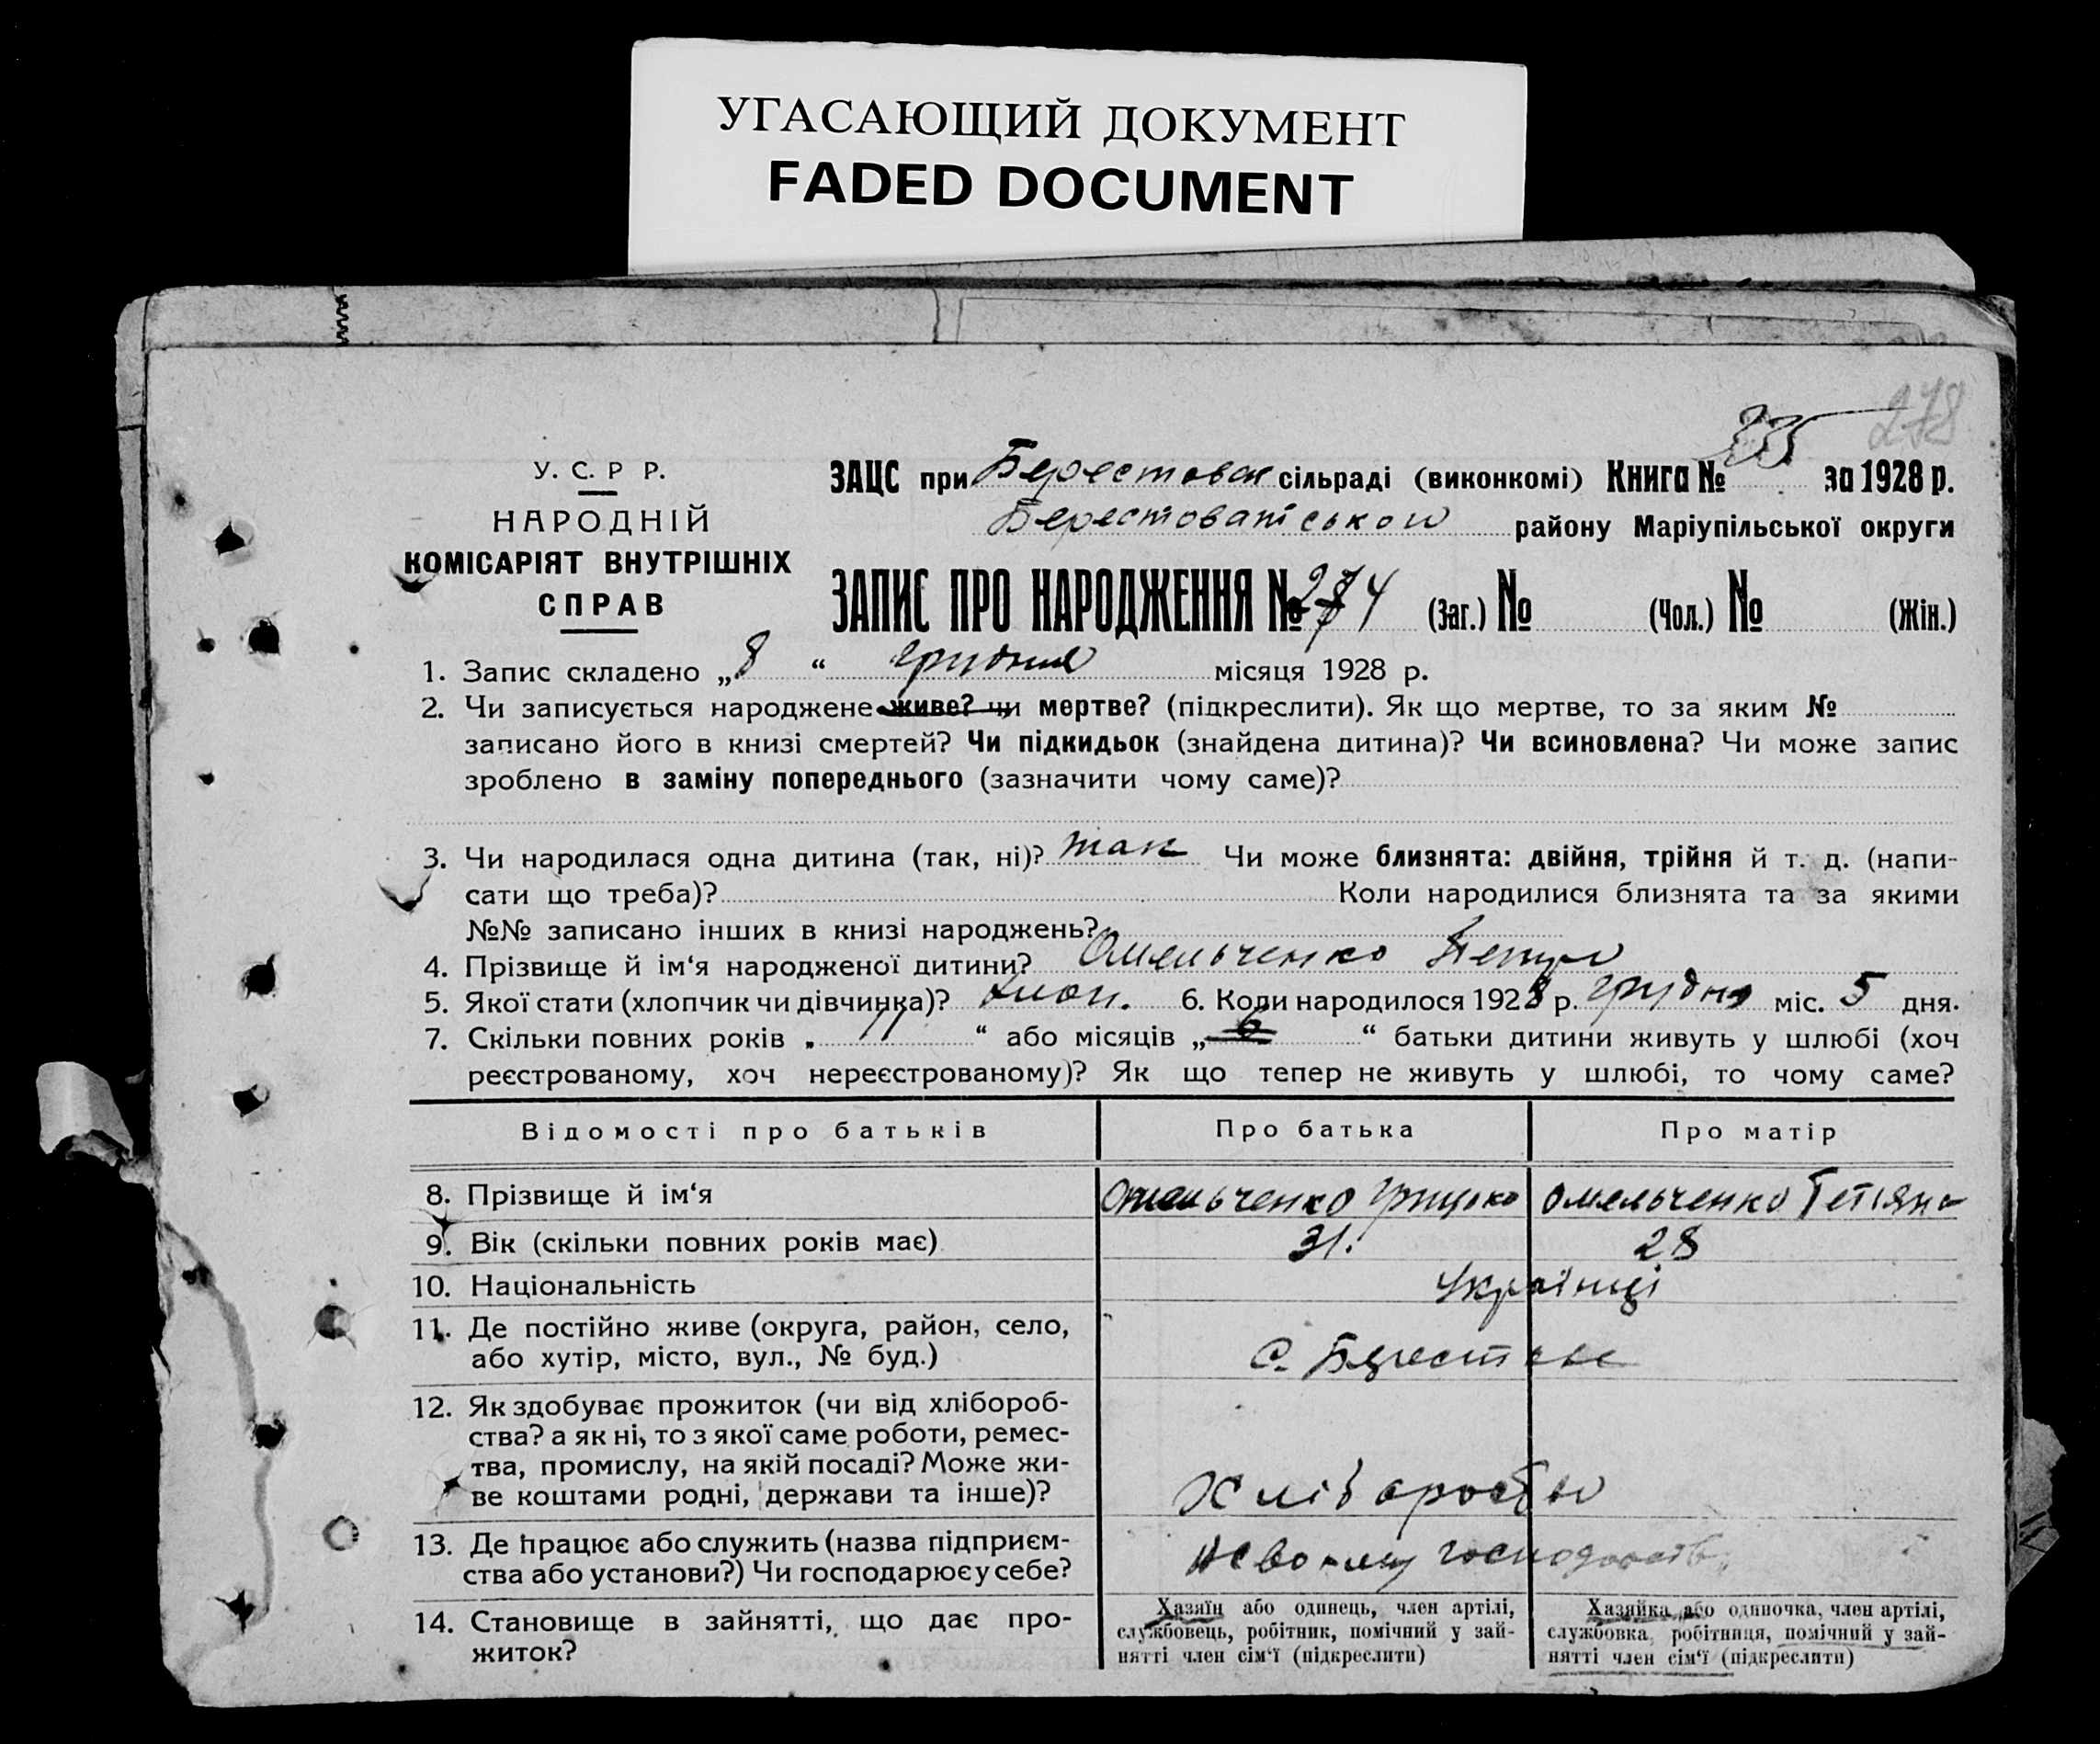 УГАСАЮЩИЙ ДОКУМЕНТ
FADED DOCUMENT
278
У. С. Р Р.
НАРОДНІЙ
КОМІСАРІЯТ ВНУТРІШНІХ
СПРАВ
ЗАЦС при Берестовск сільраді (виконкомі) Книга № за 1928 р.
району Маріупільської округи
ЗАПИС ПРО НАРОДЖЕННЯ № (Заг.) № (Чол.) № (Жін.)
1. Запис складено „8“ грудня місяця 1928 р.
2. Чи записується народжене живе? чи мертве? (підкреслити). Як що мертве, то за яким №
записано його в книзі смертей? Чи підкидьок (знайдена дитина)? Чи всиновлена? Чи може запис
зроблено в заміну попереднього (зазначити чому саме)?
3. Чи народилася одна дитина (так, ні)? так Чи може близнята: двійня, трійня й т. д. (напи-
сати що треба)? Коли народилися близнята та за якими
№№ записано інших в книзі народжень?
4. Прізвище й ім‘я народженої дитини? Омельченко Петро
5. Якої стати (хлопчик чи дівчинка)? хлоп. 6. Коли народилося 1928 р. грудня міс. 5 дня.
7. Скільки повних років „11“ або місяців „6“ батьки дитини живуть у шлюбі (хоч
реєстрованому, хоч нереєстрованому)? Як що тепер не живуть у шлюбі, то чому саме?
Відомості про батьків Про батька Про матір
8. Прізвище й ім‘я Омельченко Грицько Омельченко Тетіяна
9. Вік (скільки повних років має) 31. 28
10. Національність Українці
11. Де постійно живе (округа, район, село,
або хутір, місто, вул., № буд.) с. Берестове
12. Як здобуває прожиток (чи від хлібороб-
ства? а як ні, то з якої саме роботи, ремес-
тва, промислу, на якій посаді? Може жи-
ве коштами родні, держави та інше)? Хлібороби
13. Де працює або служить (назва підприєм-
ства або установи?) Чи господарює у себе?
14. Становище в зайнятті, що дає про-
житок?
Хазяїн або одинець, член артілі,
службовець, робітник, помічний у зай-
нятті член сім‘ї (підкреслити)
Хазяйка або одиночка, член артілі,
службовка, робітниця, помічний у зай-
нятті член сім‘ї (підкреслити)